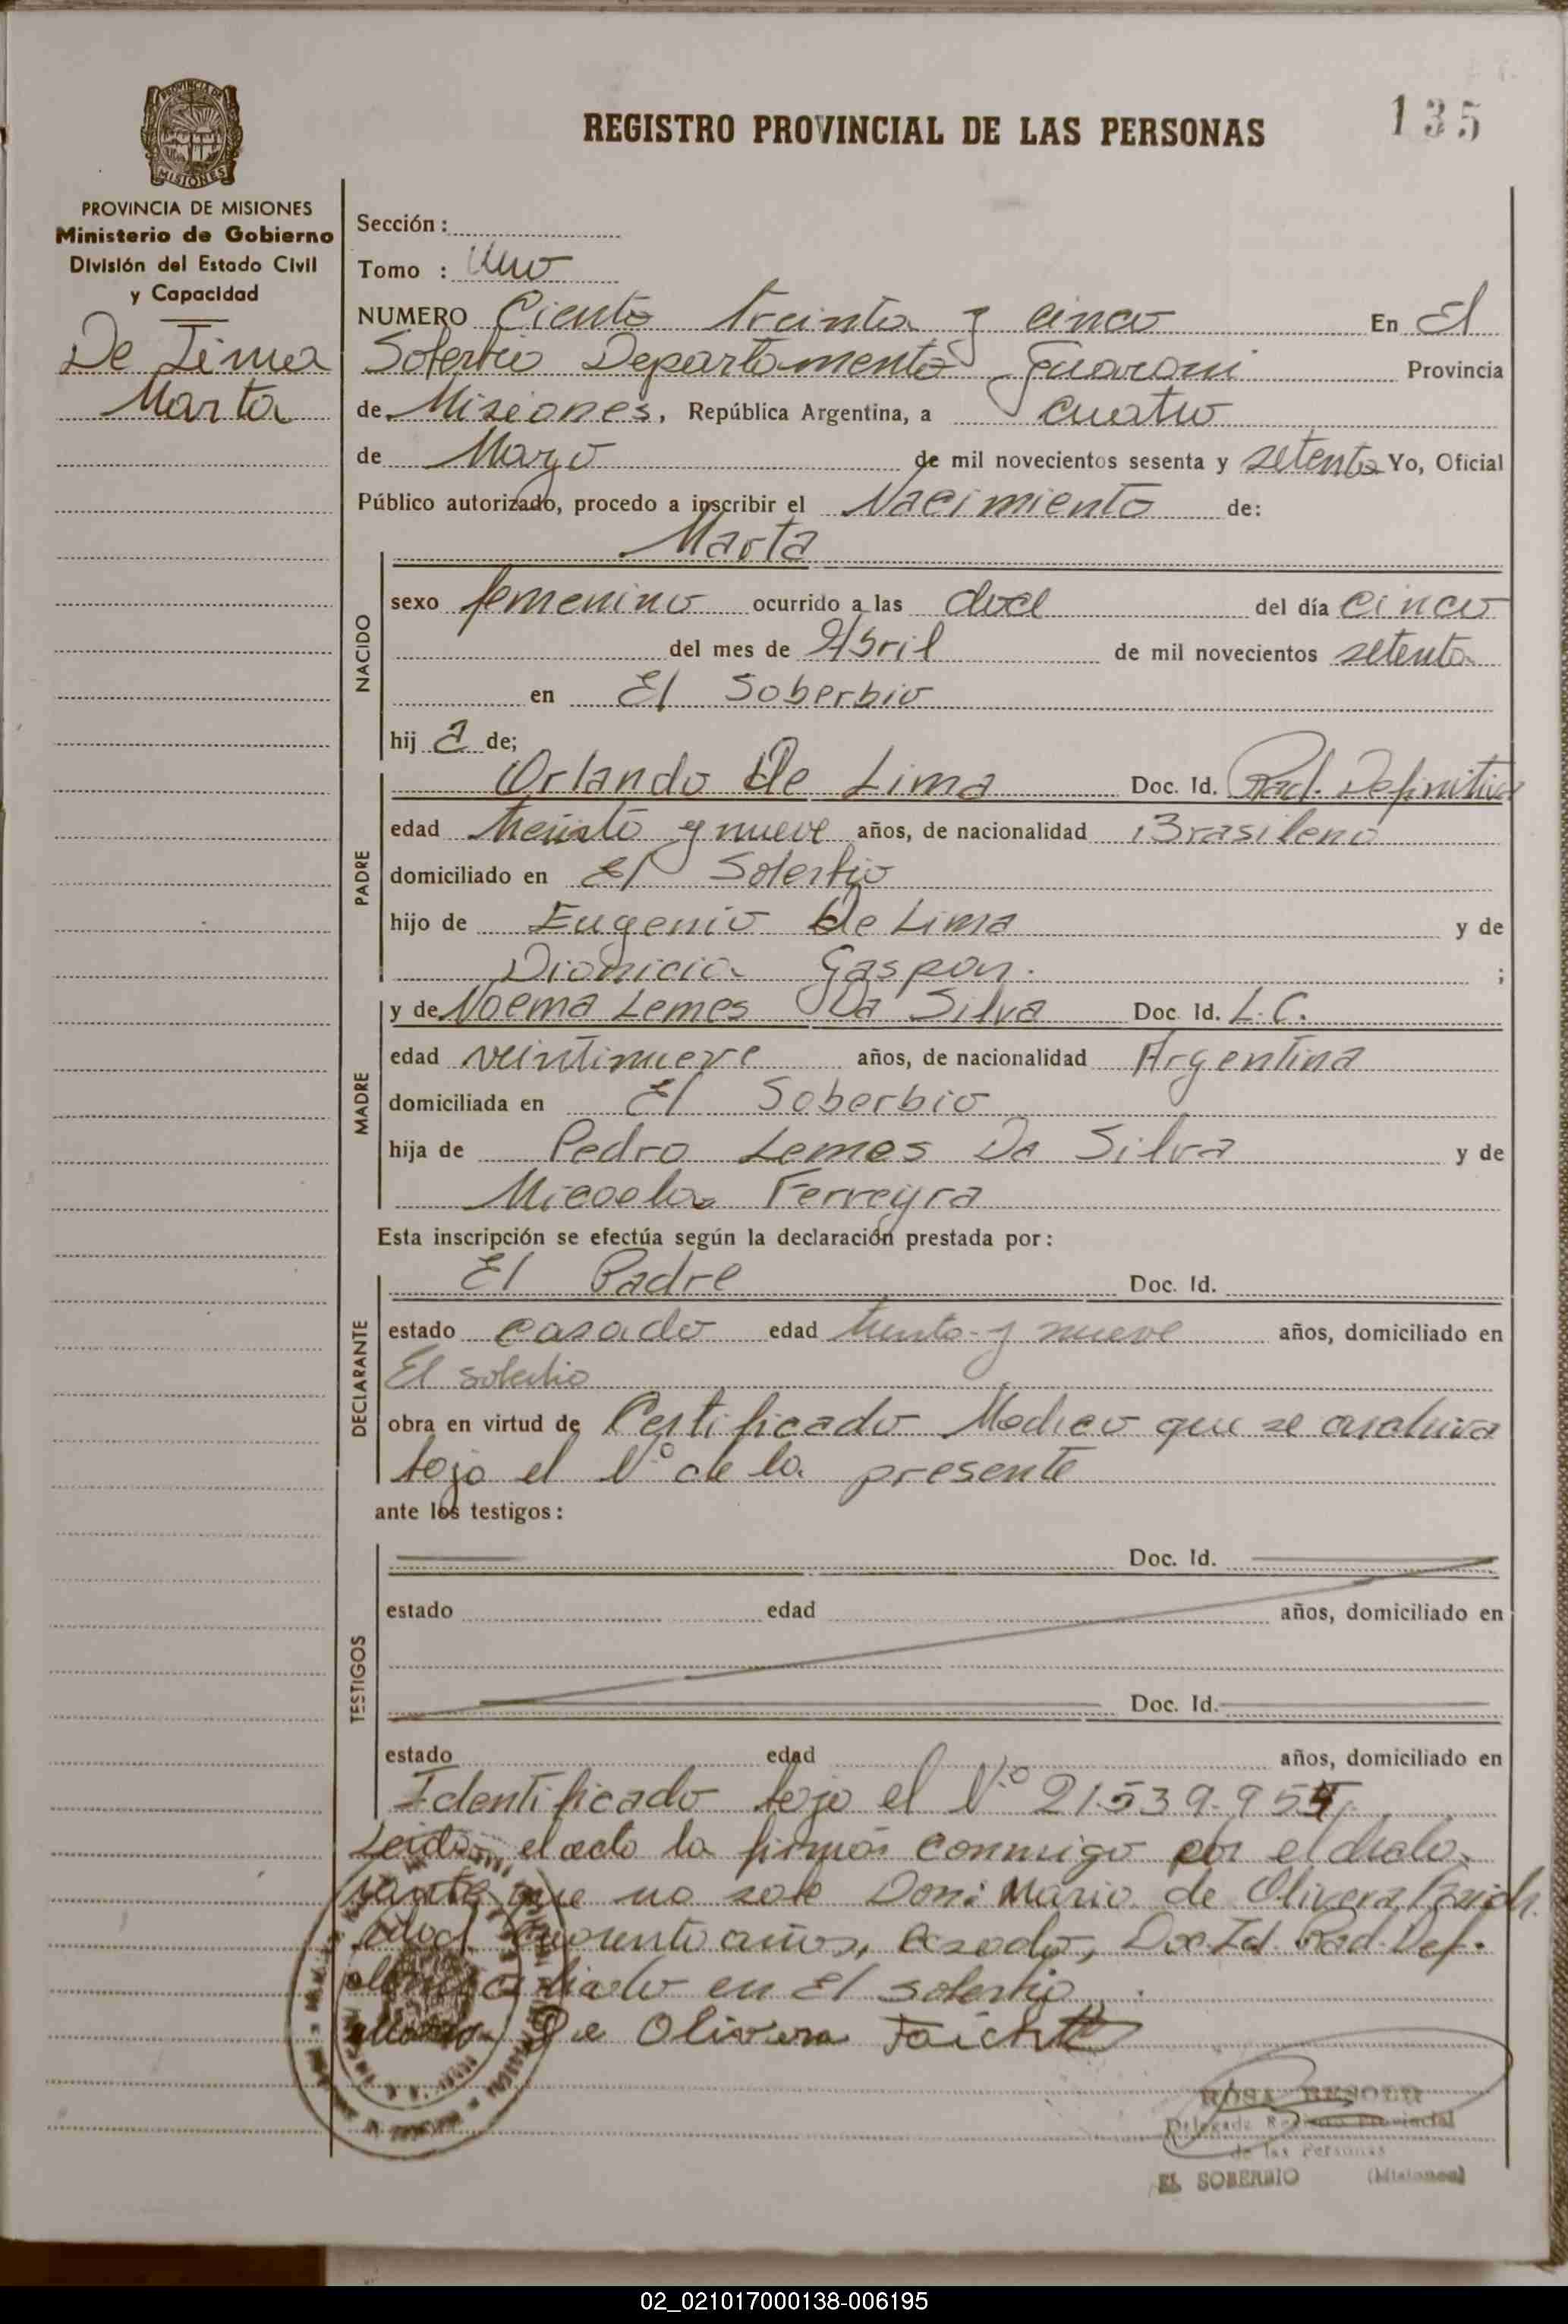 135
REGISTRO PROVINCIAL DE LAS PERSONAS
PROVINCIA DE MISIONES
Ministerio de Gobierno
División del Estado Civil
y Capacidad
De Lima
Marta
Sección :
Tomo : Uno
NUMERO Ciento treinta y cinco En El
Soberbio Departamento Guarani Provincia
de Misiones, República Argentina, a cuatro
de Mayo de mil novecientos sesenta y setenta Yo, Oficial
Público autorizado, procedo a inscribir el Nacimiento de:
NACIDO
Marta
sexo femenino ocurrido a las doce del día cinco
del mes de Abril de mil novecientos setenta
en El Soberbio
hij a de;
PADRE
Orlando De Lima Doc. Id. Rad. Definitiva
edad treinta y nueve años, de nacionalidad Brasileno
domiciliado en El Soberbio
hijo de Eugenio De Lima y de
Dionicia Gaspar. ;
MADRE
y de Noema Lemes Da Silva Doc. Id. L.C.
edad veintinueve años, de nacionalidad Argentina
domiciliada en El Soberbio
hija de Pedro Lemes Da Silva y de
Micaela Ferreyra
Esta inscripción se efectúa según la declaración prestada por :
DECLARANTE
El Padre Doc. Id.
estado casado edad treinta y nueve años, domiciliado en
El soberbio
obra en virtud de Certificado Medico que se archiva
bajo el Nº de la presente
ante los testigos :
TESTIGOS
Doc. Id.
estado edad años, domiciliado en
Doc. Id.
estado edad años, domiciliado en
Identificado bajo el Nº 21.539.954
Leida el acto la firma conmigo por el decla-
rante que no sabe Don: Mario de Olivera
cuarenta años, casado, Doc. Id. Rad. Def.
en El soberbio
Mario De Olivera
ROSA
Delegada Registro Provincial
de las Personas
EL SOBERBIO (Misiones)
02_021017000138-006195